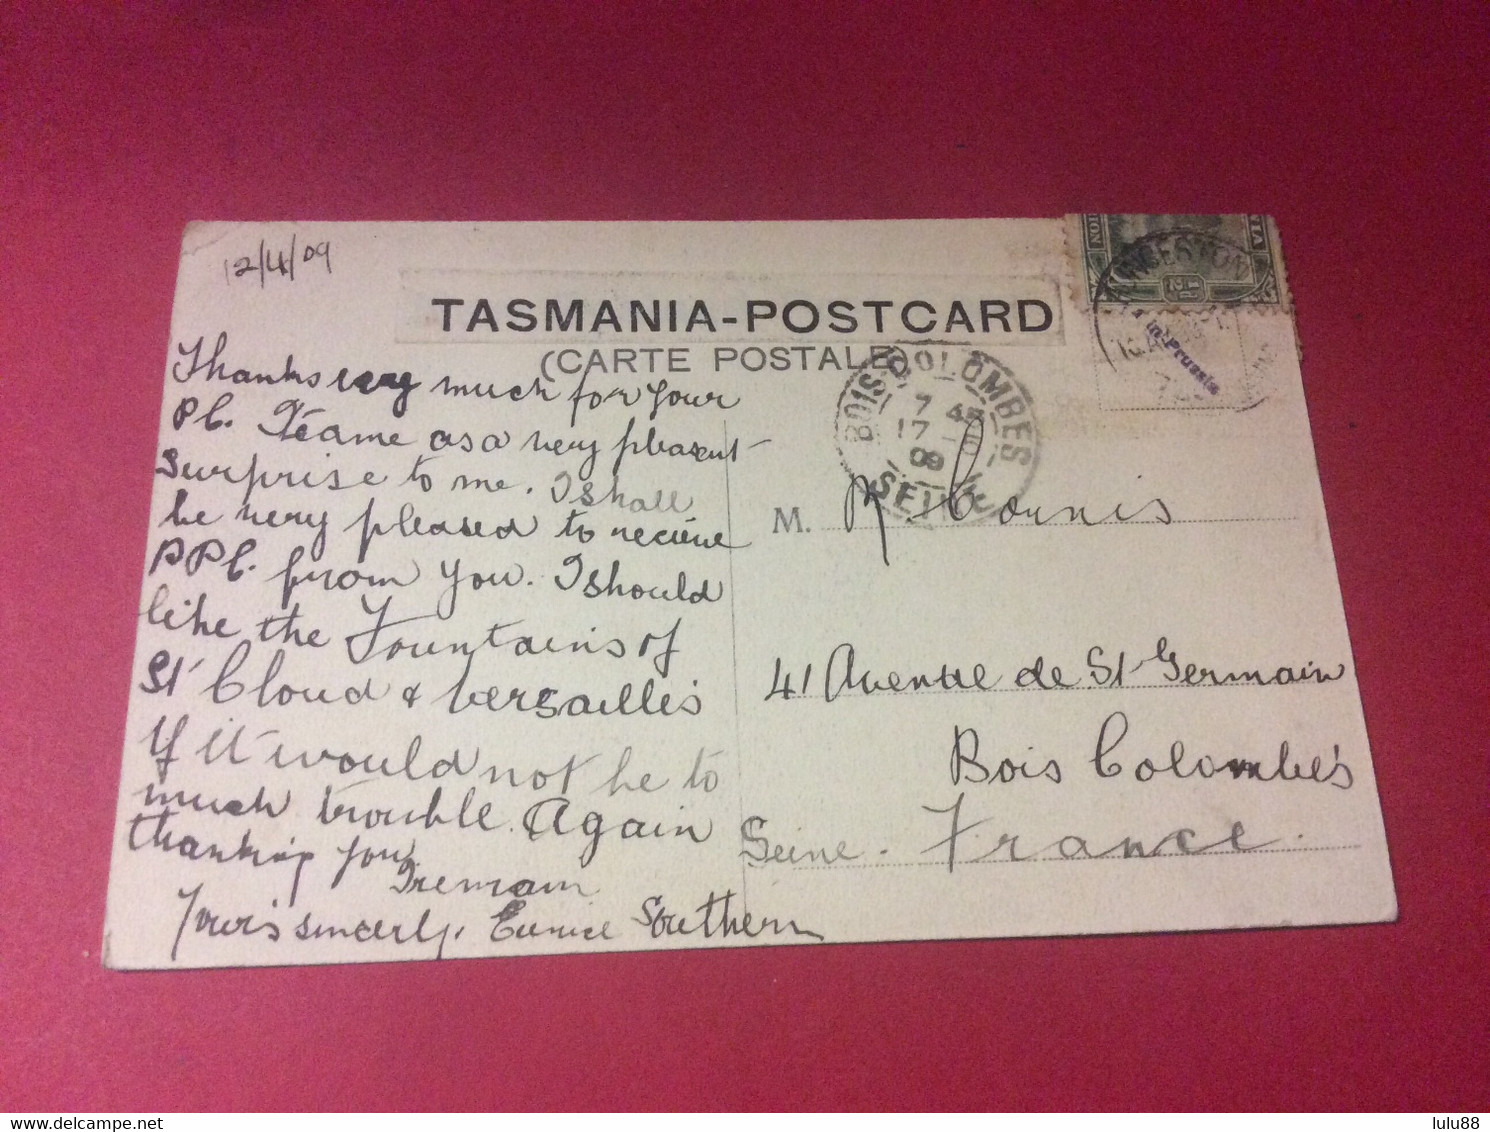 12/4/09
TASMANIA-POSTCARD
(CARTE POSTALE)
Thanks very much for your
Pc. It came as a very pleasent
surprise to me. I shall
be very pleased to recieve
PPC. from you. I should
like the Fountains of
St Cloud & Versailles
If it would not be to
much trouble. Again
thanking you.
I remain
Your's sincerly, Eunice Southern
½d
LAUNCESTON
Printed in Prussia
BOIS COLOMBES
7
17
09
SEINE
M. Cornis
41 Avenue de St Germain
Bois Colombes
Seine. France.
delcampe.net
lulu88